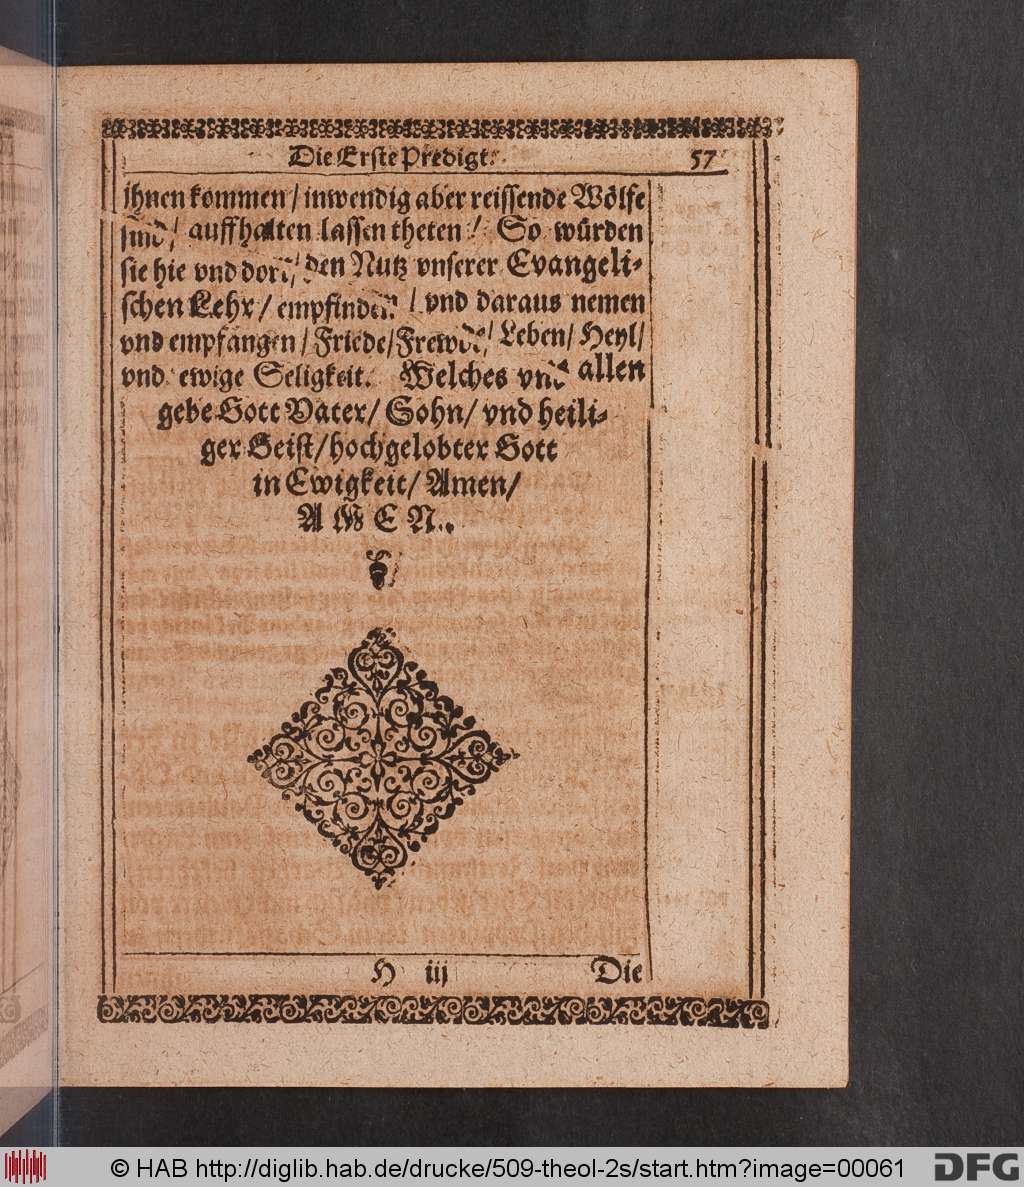 Die Erste Predigt. 57
ihnen kommen / inwendig aber reissende Wölfe
sind / auffhalten lassen theten / So würden
sie hie vnd dort / den Nutz vnserer Evangeli-
schen Lehr / empfinden / vnd daraus nemen
vnd empfangen / Friede / Frewde / Leben / Heyl /
vnd ewige Seligkeit. Welches vns allen
gebe Gott Vater / Sohn / vnd heili-
ger Geist / hochgelobter Gott
in Ewigkeit / Amen /
A M E N.
H iij Die
© HAB http://diglib.hab.de/drucke/509-theol-2s/start.htm?image=00061 DFG